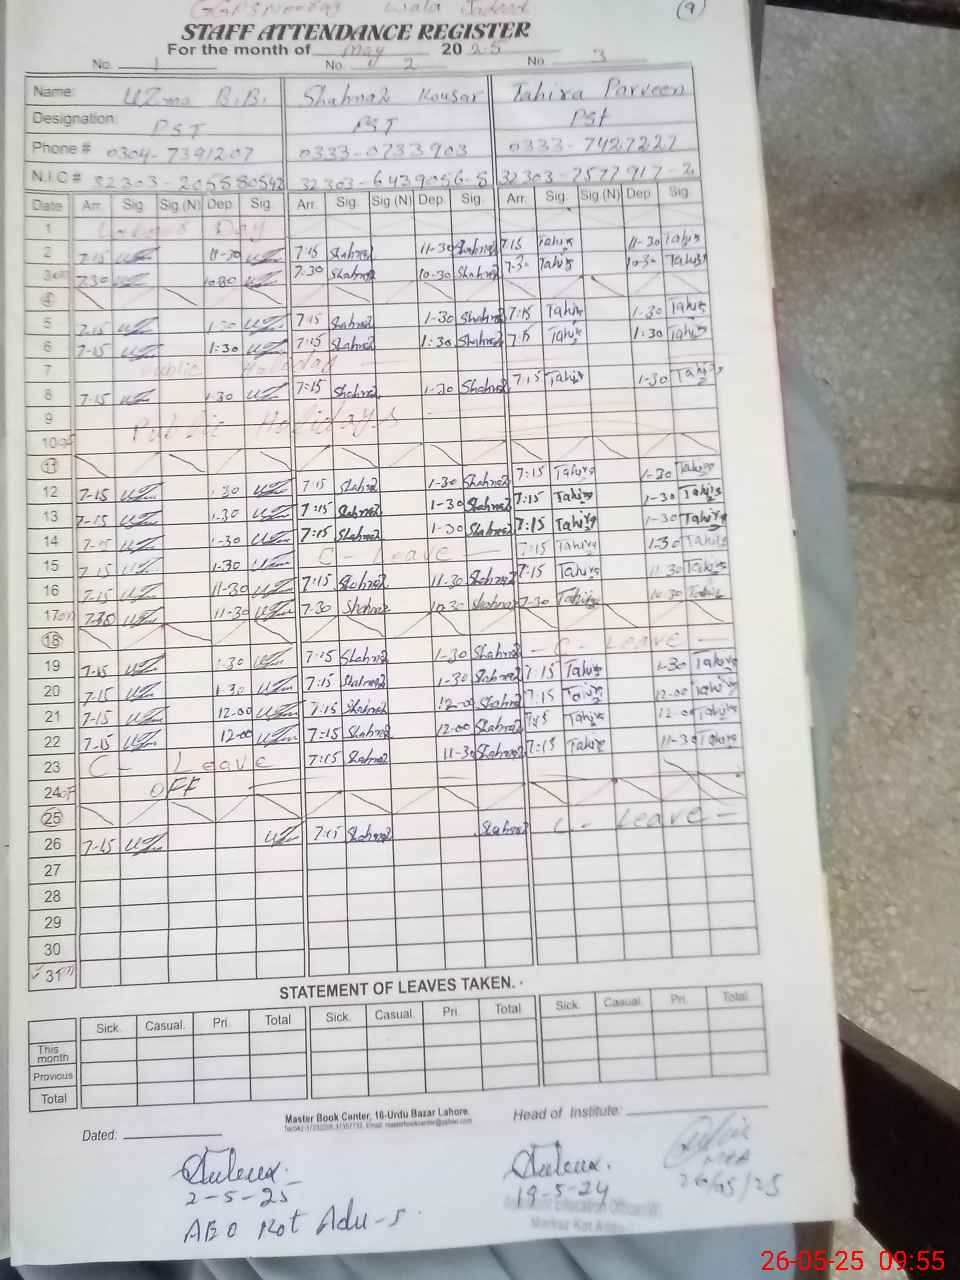 STAFF ATTENDANCE REGISTER
For the month of May 2025
No. 1 No. 2 No. 3
Name: Uzma B.B. Shahnaz Kousar Tahira Parveen
Designation: PST PST PST
Phone # 0304-7391207 0333-0733903 0333-7427227
N.I.C # 32303-2055880592 32303-6439056-8 32303-7577917-2
Date Arr. Sig. Sig.(N) Dep. Sig. Arr. Sig. Sig (N) Dep. Sig. Arr. Sig. Sig (N) Dep. Sig.
1 Labour Day
2 7-15 11-30 7:15 Shahnaz 11-30 Shahnaz 7:15 Tahira 11-30 Tahira
3 7-30 10-30 7:30 Shahnaz 10-30 Shahnaz 7-30 Tahira 10-30 Tahira
4
5 7-15 1-30 7:15 Shahnaz 1-30 Shahnaz 7:15 Tahira 1-30 Tahira
6 7-15 1:30 7:15 Shahnaz 1:30 Shahnaz 7:15 Tahira 1:30 Tahira
7 Public Holiday
8 7-15 1-30 7:15 Shahnaz 1-30 Shahnaz 7:15 Tahira 1-30 Tahira
9 Public Holidays
10
11
12 7-15 1-30 7:15 Shahnaz 1-30 Shahnaz 7:15 Tahira 1-30 Tahira
13 7-15 1-30 7:15 Shahnaz 1-30 Shahnaz 7:15 Tahira 1-30 Tahira
14 7-15 1-30 7:15 Shahnaz 1-30 Shahnaz 7:15 Tahira 1-30 Tahira
15 7-15 1-30 C - Leave 7:15 Tahira 1-30 Tahira
16 7-15 11-30 7:15 Shahnaz 11-30 Shahnaz 7-15 Tahira 11-30 Tahira
17 7-30 11-30 7:30 Shahnaz 10-30 Shahnaz 7-30 Tahira 10-30 Tahira
18
19 7-15 1-30 7:15 Shahnaz 1-30 Shahnaz - C - Leave -
20 7-15 1-30 7:15 Shahnaz 1-30 Shahnaz 7:15 Tahira 1-30 Tahira
21 7-15 12-00 7:15 Shahnaz 12-00 Shahnaz 7:15 Tahira 12-00 Tahira
22 7-15 12-00 7:15 Shahnaz 12-00 Shahnaz 7:15 Tahira 12-00 Tahira
23 C - Leave 7:15 Shahnaz 11-30 Shahnaz 7:15 Tahira 11-30 Tahira
24 OFF
25
26 7-15 7:15 Shahnaz Shahnaz C - Leave -
27
28
29
30
31
STATEMENT OF LEAVES TAKEN.
Sick. Casual. Pri. Total Sick. Casual. Pri. Total Sick. Casual. Pri. Total
This month
Previous
Total
Master Book Center, 16-Urdu Bazar Lahore.
Dated: Head of Institute:
2-5-25 19-5-24 26/05/25
AEO Kot Adu-5
26-05-25 09:55